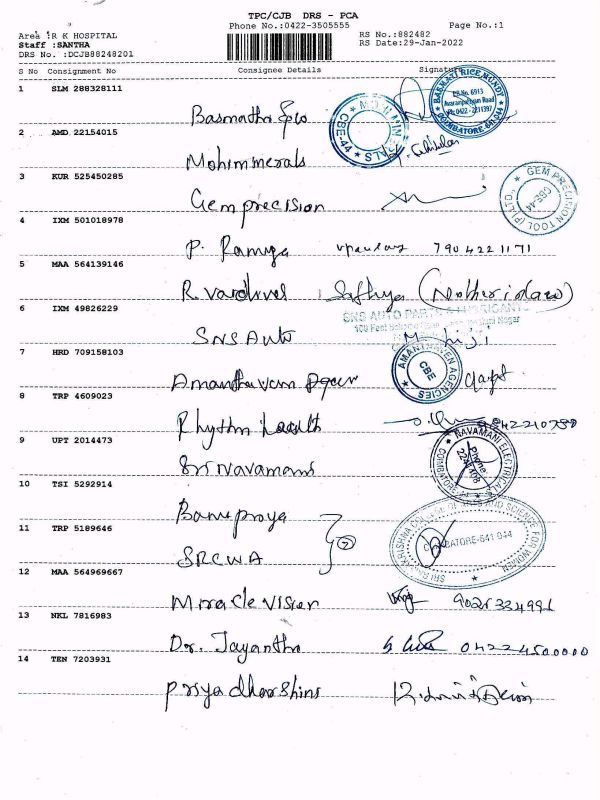 TPC/CJB DRS - PCA
Phone No.:0422-3505555 Page No.:1
Area :R K HOSPITAL RS No.:882482
Staff :SANTHA RS Date:29-Jan-2022
DRS No. :DCJB88248201
S No Consignment No Consignee Details Signature
1 SLM 288328111
Basmathi
BASMATI RICE MUNDY
COIMBATORE-44
2 AMD 22154015
Mohimmerals
CBE-44
3 KUR 525450285
Gem precision
GEM PRECISION TOOL (P) LTD.,
CBE-44
4 IXM 501018978
P. Ramya 7904221171
5 MAA 564139146
R vardhines Sathya (Mother in law)
6 IXM 49826229
SNS Auto
SNS AUTO PARTS & LUBRICANTS
7 HRD 709158103
Amanthaven Agen
AMANTHAVEN AGENCIES
CBE
8 TRP 4609023
Rhythm Health 9842210750
9 UPT 2014473
Sri Navamani
NAVAMANI ELECTRICALS
Phone
10 TSI 5292914
Banupriya
11 TRP 5189646
SRCWA
SRI RAMAKRISHNA COLLEGE OF ARTS AND SCIENCE FOR WOMEN
COIMBATORE-641 044
12 MAA 564969667
Miracle vision
13 NKL 7816983
Dr. Jayantha 04224500000
14 TEN 7203931
Priyadharshini